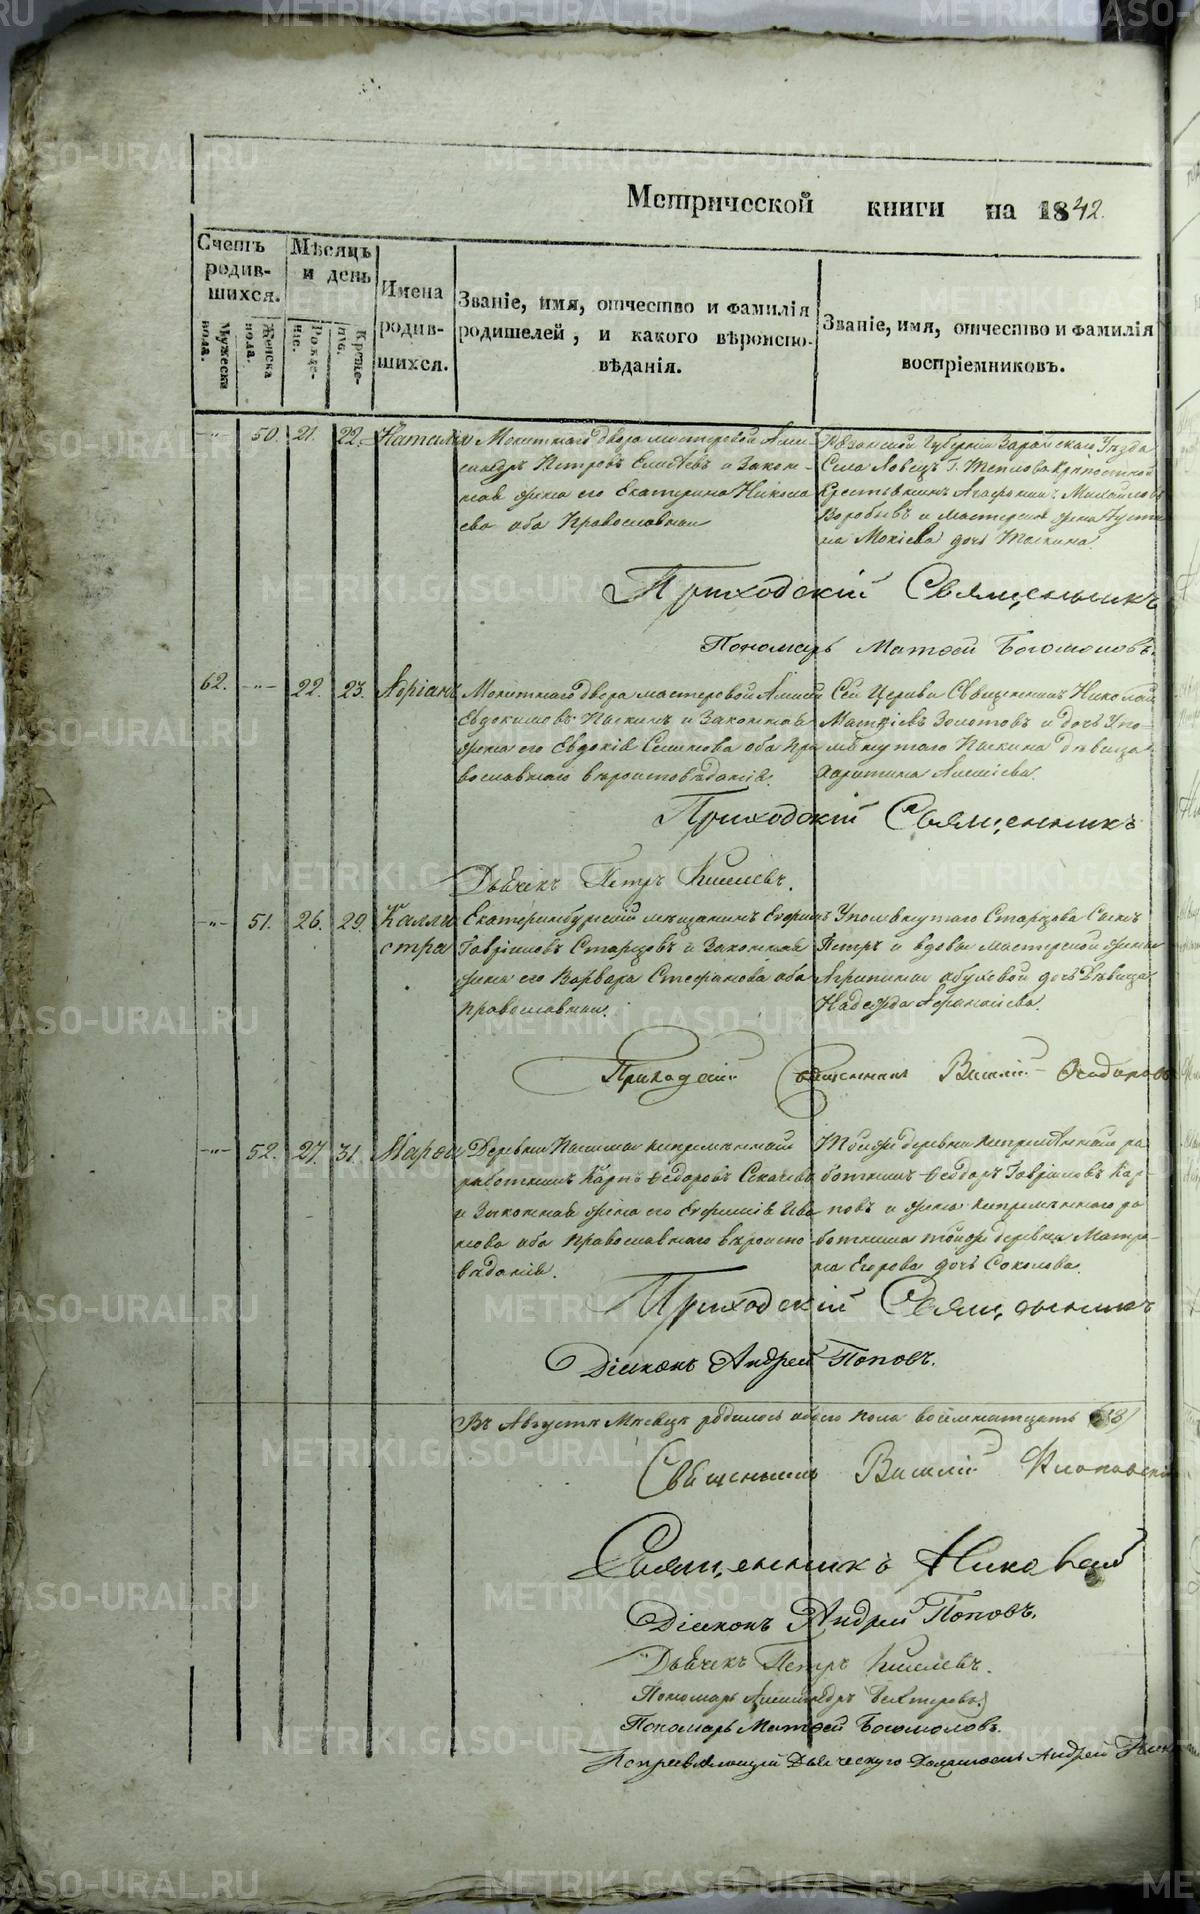 Метрической книги на 1842.
Счетъ родив-шихся.
Мужеска пола.
Женска пола.
Мѣсяцъ и день
Рожде-нія.
Креще-нія.
Имена родив-шихся.
Званіе, имя, отчество и фамилія
родителей, и какого вѣроиспо-
вѣданія.
Званіе, имя, отчество и фамилія
воспріемниковъ.
-"- 50. 21. 22. Наталія
Монетнаго двора мастеровой Алек-
сандръ Петровъ Елисѣевъ и Закон-
ная жена его Екатерина Никола
ева оба Православныи
Рязанской Губерніи Зарайскаго Уѣзда
Села Ловецъ Г. Теплова Крѣпостной
Крестьянинъ Агафонъ Михайловъ
Воробьевъ и мастерска жена Аусти
на Мокіева дочь
Приходскій Священникъ
Пономарь Матфей Богомоловъ.
62. -"- 22. 23. Адріанъ
Монетнаго двора мастеровой Алексѣй
Евдокимовъ Паскинъ и Законная
жена его Евдокія Семенова оба Пра
вославнаго вѣроисповѣданія.
Сей Церкви Священникъ Николай
Матвѣевъ Золотовъ и дочь Упо-
мянутаго Паскина дѣвица
Харитина Алексѣева.
Приходскій Священникъ
Дьячекъ Петръ Киселевъ.
-"- 51. 26. 29. Каллистра
Екатеринбургскій мѣщанинъ Ефремъ
Гавріиловъ Старцовъ и Законная
жена его Варвара Стефанова оба
православныи.
Упомянутаго Старцова Сынъ
Петръ и вдовы мастерской жены
Агрипины Обуховой дочь Дѣвица
Надежда Афанасіева.
Приходскій Священникъ Василій
-"- 52. 27. 31. Марѳа
Деревни непремѣнный
работникъ Карпъ Ѳедоровъ
и Законная жена его Евфимія Ива
нова оба Православнаго вѣроиспо
вѣданія.
Той же деревни непремѣнный ра
ботникъ Ѳеодоръ Гавріиловъ Кар-
повъ и жена непремѣннаго ра
ботника той же деревни Матре-
на Егорова дочь Соколова.
Приходскій Священникъ
Діаконъ Андрей Поповъ.
Въ Августѣ Мѣсяцѣ родилось обоего пола восемнатцать (18)
Священникъ Василій
Священникъ Николай
Діаконъ Андрей Поповъ.
Дьячекъ Петръ Киселевъ.
Пономарь Александръ
Пономарь Матфей Богомоловъ.
Исправляющій Дьяческую Должность Андрей
METRIKI.GASO-URAL.RU